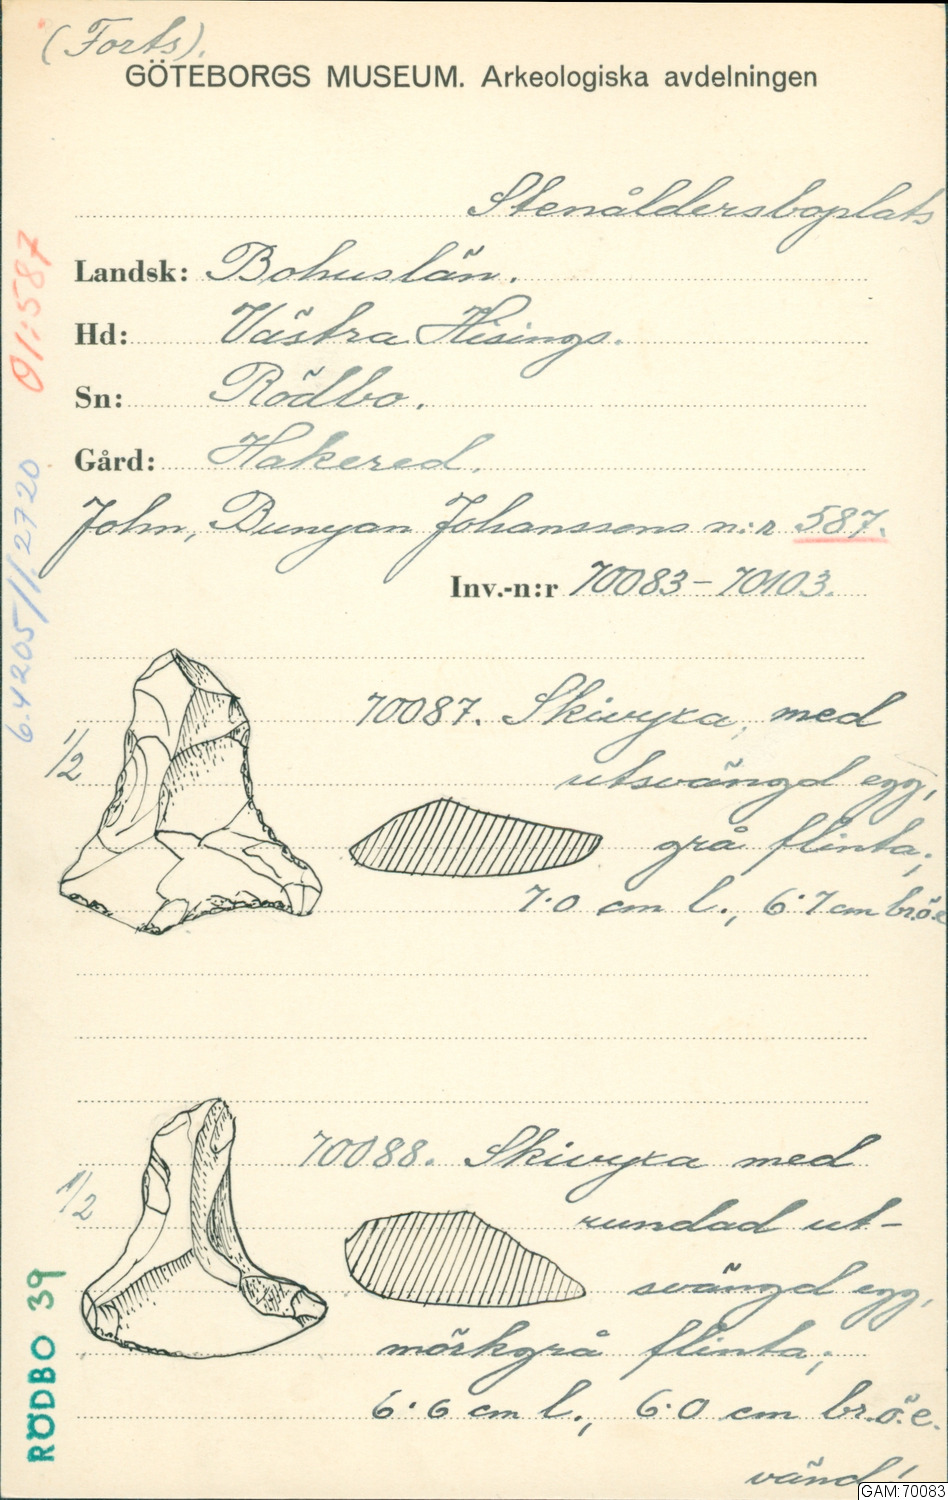 (Forts).
GÖTEBORGS MUSEUM. Arkeologiska avdelningen
Stenåldersboplats
Landsk: Bohuslän.
Hd: Västra Hisings.
Sn: Rödbo.
Gård: Hakered.
John, Bunyan Johanssons n:r 587.
Inv.-n:r 70083-70103.
1/2
70087. Skivyxa, med
utsvängd egg,
grå flinta;
7.0 cm l., 6.7 cm br.ö.e
1/2
70088. Skivyxa med
rundad ut-
svängd egg,
mörkgrå flinta;
6.6 cm l., 6.0 cm br.ö.e.
vänd!
01:587
6.4205/1.2720
RÖDBO 39
GAM:70083